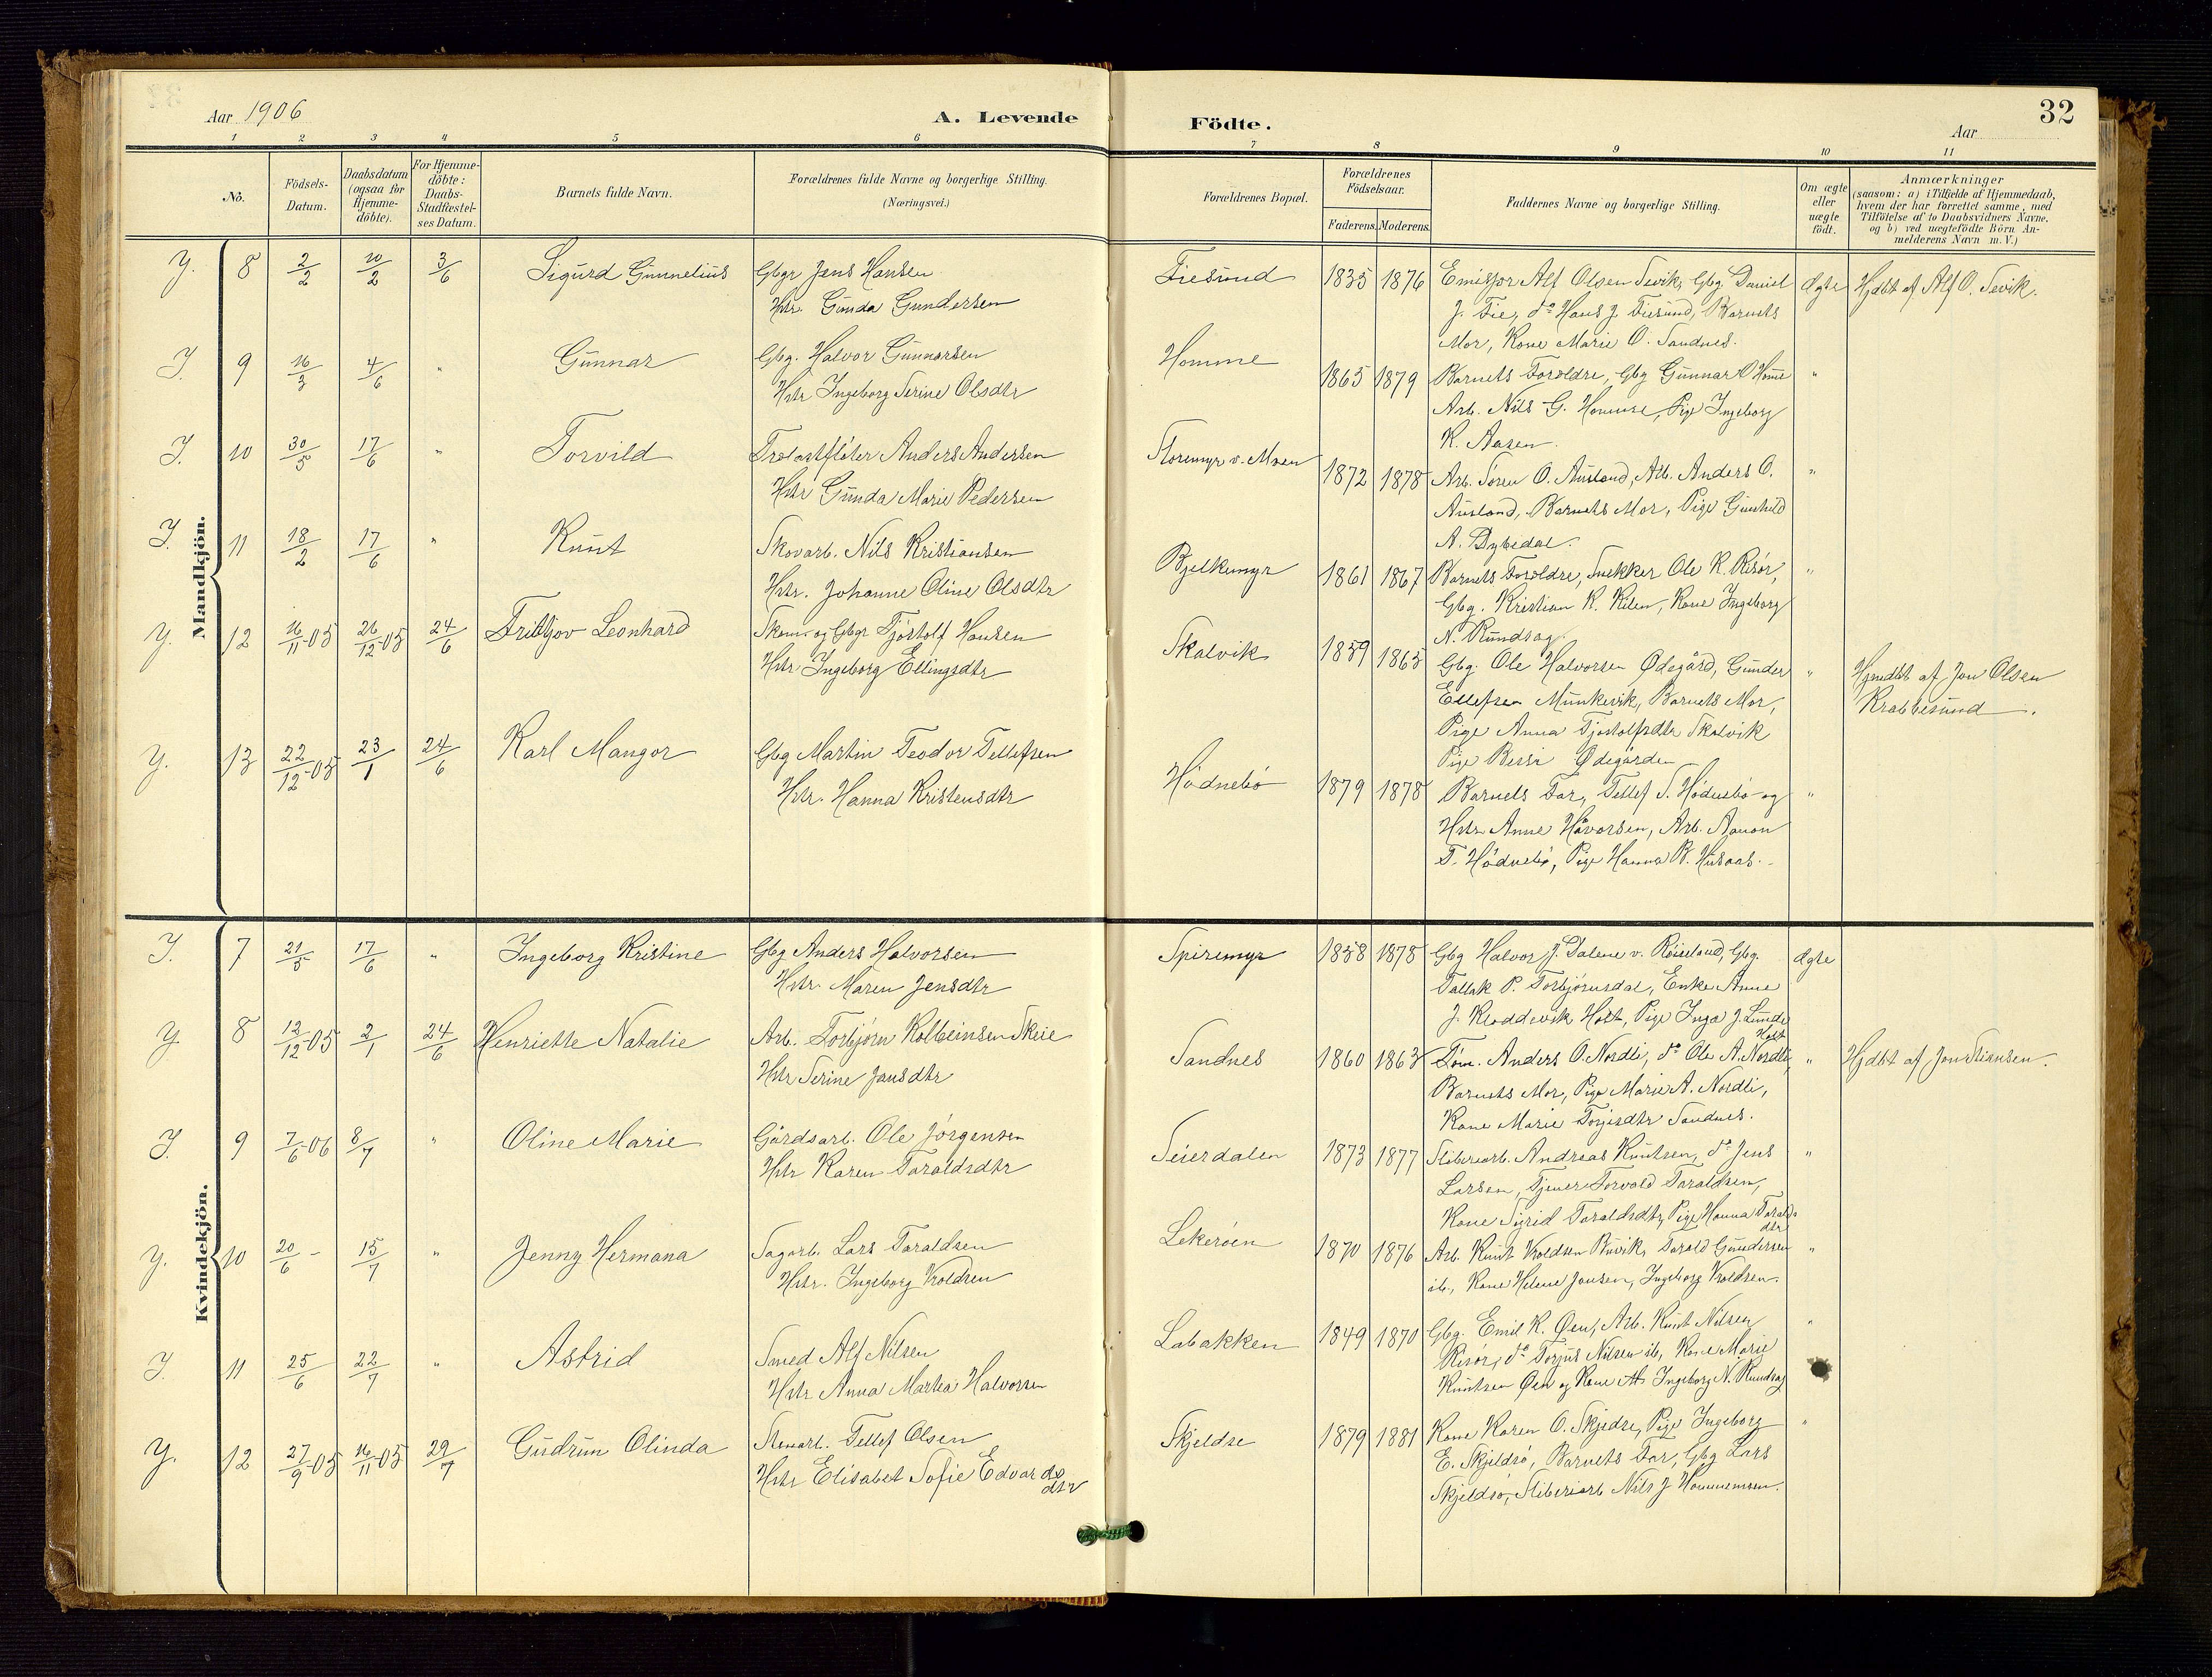 Aar 1906
A. Levende
Födte.
Aar
32
1 2 3 4 5 6 7 8 9 10 11
No.
Födsels-
Datum.
Daabsdatum
(ogsaa for
Hjemme-
döbte).
For Hjemme-
döbte:
Daabs-
Stadfæstel-
ses Datum.
Barnets fulde Navn.
Forældrenes fulde Navne og borgerlige Stilling.
(Næringsvei.)
Forældrenes Bopæl.
Forældrenes
Födselsaar.
Faderens. Moderens.
Faddernes Navne og borgerlige Stilling.
Om ægte
eller
uægte
födt.
Anmærkninger
(saasom: a) i Tilfælde af Hjemmedaab,
hvem der har forrettet samme, med
Tilföielse af to Daabsvidners Navne,
og b) ved uægtefödte Börn An-
melderens Navn m. V.)
Mandkjön.
Y. 8 2/2 10/2 3/6 Sigurd Gunnelius
Gbgr Jens Hansen
Hstr. Gunda Gundersen
Fiesund 1835 1876
Emissær Alf Olsen Sevik, Gbg. Daniel
J. Fie, do Hans J. Fiesund, Barnets
Mor, Kone Marie O. Sandnes.
Ægte
Hjdbt af Alf O. Sevik.
I. 9 16/3 4/6 " Gunnar
Gbg. Halvor Gunnarsen
Hstr Ingeborg Serine Olsdtr
Homme 1865 1879
Barnets Foroldre, Gbg Gunnar O Home
Arb. Nils G. Homme, Pige Ingeborg
K. Aasen.
"
I. 10 30/5 17/6 " Torvild
Anders Andersen
Hstr Gunda Marie Pedersen
Storemyr v. Moen 1872 1878
Arb. Søren O. Ausland, Arb. Anders O.
Ausland, Barnets Mor, Pige Gunhild
A. Dybedal.
"
I. 11 18/2 17/6 " Knut
Skovarb. Nils Kristiansen
Hstr. Johanne Oline Olsdtr
Bjelkemyr 1861 1867
Barnets Foroldre, Snekker Ole K. Risør,
Gbg. Kristian K. Kilen, Kone Ingeborg
N. Rundsag.
"
Y. 12 16/11-05 26/12-05 24/6 Fritjov Leonhard
Skom. og Gbgr Tjöstolf Hansen
Hstr Ingeborg Ellingsdtr
Skalvik 1859 1865
Gbg. Ole Halvorsen Ødegård, Gunder
Ellefsen Munkevik, Barnets Mor,
Pige Anna Tjostolfsdtr Skalvik
Pige Ødegården
"
Hjmdbt af Jon Olsen
Krabbesund.
Y. 13 22/12-05 23/1 24/6 Karl Mangor
Gbg Martin Teodor Tellefsen
Hstr. Hanna Kristensdtr
Hødnebø 1879 1878
Barnets Far, Tellef S. Hødnebø og
Hstr Anne Håvorsen, Arb. Aanon
T. Hødnebø, Pige Hanna B. Husaas.
"
Kvindekjön.
I. 7 21/5 17/6 " Ingeborg Kristine
Gbg Anders Halvorsen
Hstr. Maren Jensdtr
Spiremyr 1858 1878
Gbg Halvor J. Dalene v. Røiseland, Gbg.
Tallak P. Torbjørnsdal, Enke Anne
J. Kloddevik Holt, Pige Inga J. Lunde
Holt
Ægte
Y. 8 12/12-05 2/1 24/6 Henriette Natalie
Arb. Torbjørn Kolbeinsen Skeie
Hstr Serine Jansdtr
Sandnes 1860 1863
Tøm. Anders O. Nordli, do Ole A. Nordli,
Barnets Mor, Pige Marie A. Nordli,
Kone Marie Torjusdtr Sandnes.
"
Hjdbt af Jon Stiansen.
I. 9 7/6-06 8/7 " Oline Marie
Gårdsarb. Ole Jørgensen
Hstr Karen Taraldsdtr
Seierdalen 1873 1877
Sliberiarb. Andreas Knutsen, do Jens
Larsen, Tjener Torvald Taraldsen,
Kone Sigrid Taraldsdtr, Pige Hanna Taralds-
dtr
"
Y. 10 20/6 - 15/7 " Jenny Hermana
Sagarb. Lars Taraldsen
Hstr. Ingeborg Kroldsen
Lekerøen 1870 1876
Arb. Knut Kroldsen Buvik, Tarald Gundersen
ib., Kone Helene Jansen, Ingeborg Kroldsen.
"
I. 11 25/6 22/7 " Astrid
Smed Alf Nilsen
Hstr Anna Martea Halvorsen
Labakken 1849 1870
Gbg. Emil K. Øen, Arb. Knut Nilsen
Risør, do Torjus Nilsen ib, Kone Marie
Knutsen Øen og Kone Ingeborg N. Rundsag
"
Y. 12 27/9-05 16/11-05 29/7 Gudrun Olinda
Stenarb. Tellef Olsen
Hstr Elisabet Sofie Edvards
dtr
Skjeldsø 1879 1881
Kone Karen O. Skjeldsø, Pige Ingeborg
E. Skjeldsø, Barnets Far, Gbg Lars
Skjeldsø, Sliberiarb Nils J Hommemoen.
"